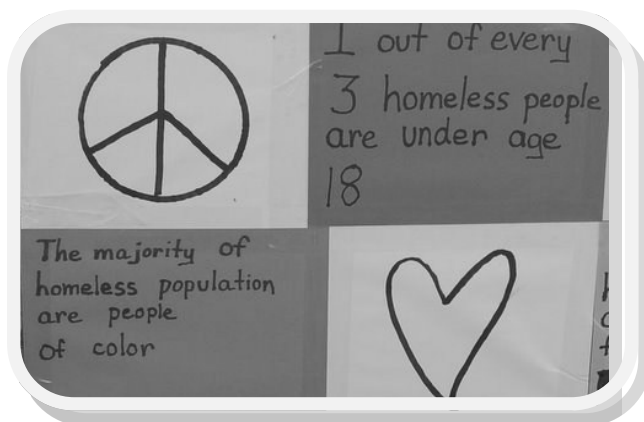 1 out of every
3 homeless people
are under age
18
The majority of
homeless population
are people
of color